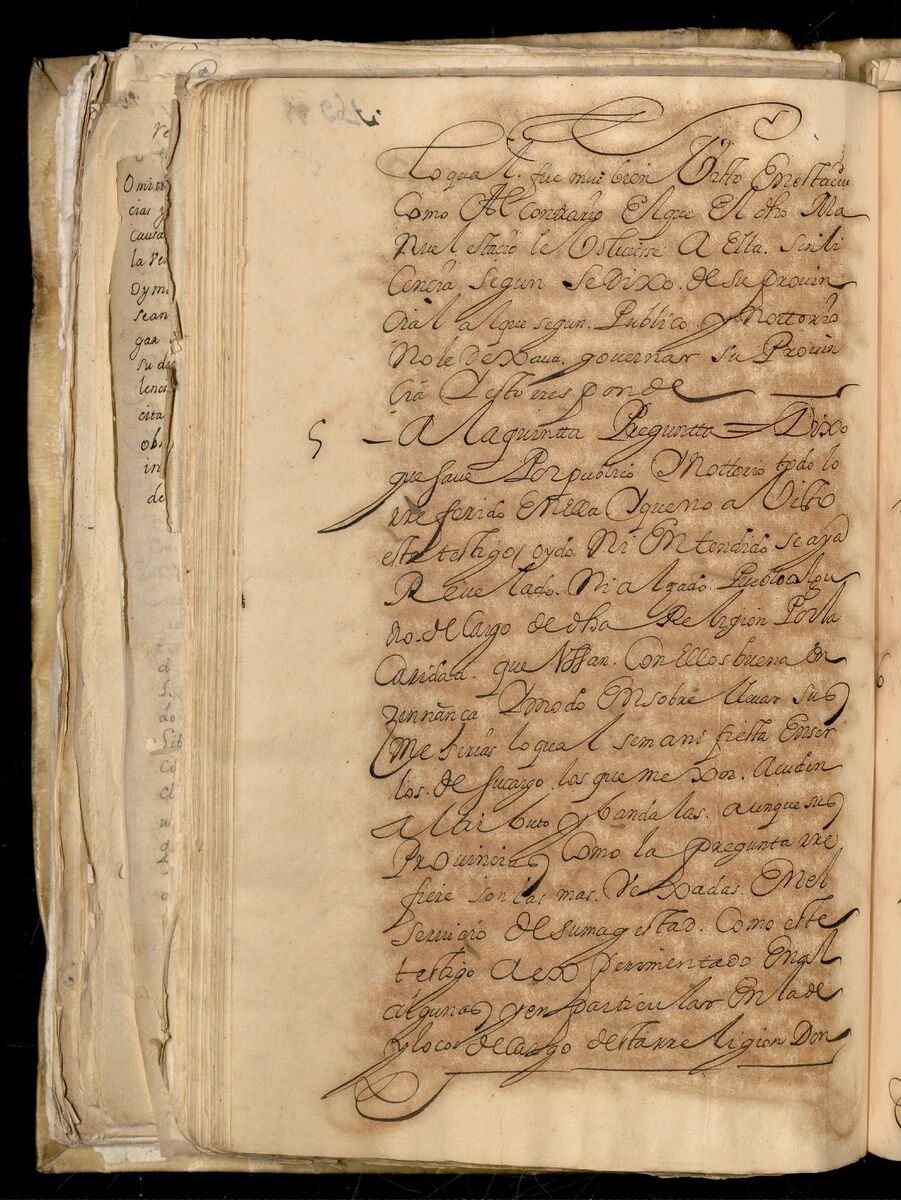 Lo qual fue mui bien Visto En estaciu
Como Al Contrario El que El dho Ma
nuel estacio le Ostuuiese A Esta Sin li
Cencia Segun Se Dixo de su prouin
cial al que segun Publico y Nottorio
No le Dexaua governar su Prouin
cia Y esto rresponde
5 - A la quintta Pregunta = Dixo
que save Por publico Y Nottorio todo lo
rreferido En Ella Y que no a Visto
este testigo oydo Ni Entendido se aya
Reuelado Ni alzado Pueblo algu
no del Cargo de dha Religion Por la
Caridad que Vssan Con Ellos buena En
zennança Y modo En sobre lleuar sus
Miserias lo qual se manifiesta En ser
los de su cargo los que mexor Acuden
al tributo y bandalas aunque sus
Prouincias Como la pregunta rre
fiere son las mas Vexadas En el
Servicio de su magestad Como este
testigo a experimentado En al
algunas y en particular En la de
Ylocos del cargo desta rreligion Don
Omiti
cias y
causa
la ver
oy mi
sean
gar
su de
lenes
cita
ob
in
de